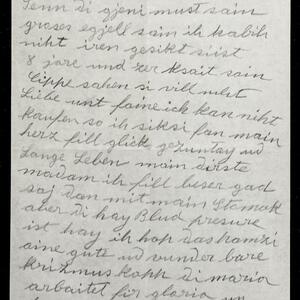 Tenn di gjeni must sain
groses egjell sain ih kabih
niht iren gesikt siist
8 jare und zer ksait sain
Lippe sahen si vill meht
Liebe unt faine ich kan niht
kaufen so ih siksi fan main
herz fill glick gezuntay ud
Lange Leben main dirste
madam ih fill beser gad
saj dan mit main Stamak
aber di hay Blud presure
ist hay ih hop das hamzi
aine gute ud vunder bare
krizmus kopp di maria
arbaitet für gloria un